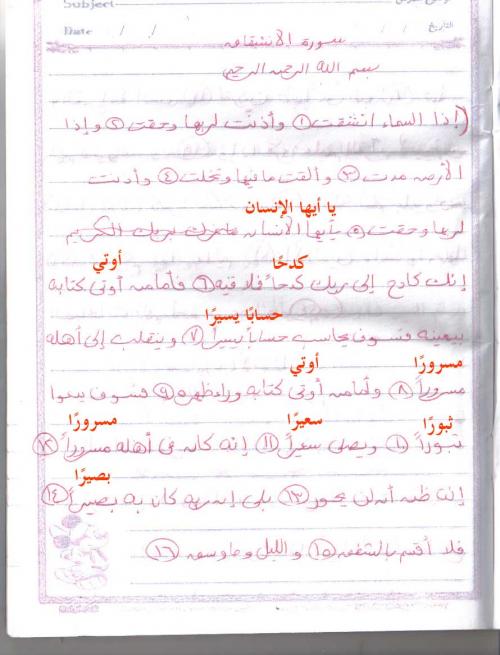 Subject:
Date / /
التاريخ / /
سورة الانشقاق
بسم الله الرحمن الرحيم
(إذا السماء انشقت ١ وأذنت لربها وحقت ٢ وإذا
الأرض مدت ٣ وألقت ما فيها وتخلت ٤ وأذنت
يا أيها الإنسان
لربها وحقت ٥ يأيها الانسان ما غرك بربك الكريم
كدحًا
أوتي
إنك كادح إلى ربك كدحاً فملاقيه ٦ فأما من أوتى كتابه
حسابًا يسيرًا
بيمينه فسوف يحاسب حساباً يسيراً ٧ وينقلب إلى أهله
مسرورًا
أوتي
مسروراً ٨ وأما من أوتى كتابه وراء ظهره ٩ فسوف يدعوا
ثبورًا
سعيرًا
مسرورًا
ثبوراً ١٠ ويصلى سعيراً ١١ إنه كان فى أهله مسروراً ١٢
بصيرًا
إنه ظن أن لن يحور ١٣ بلى إن ربه كان به بصيراً ١٤
فلا أقسم بالشفق ١٥ والليل وما وسق ١٦